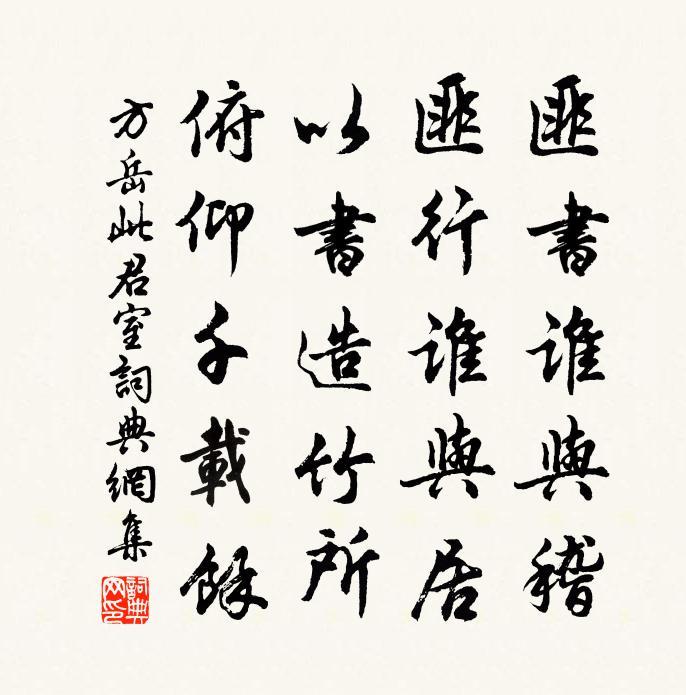 匪書誰與稽
匪行誰與居
以書造竹所
俯仰千載餘
方岳此君室詞典網集
詞典網印